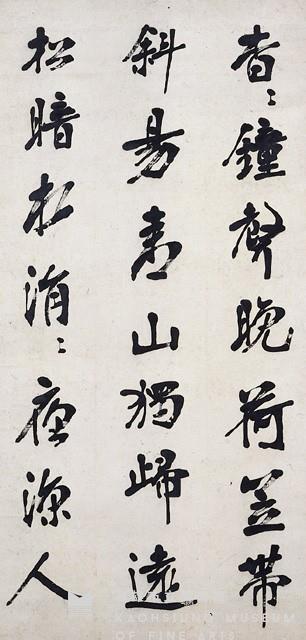 杳〻鐘聲晚荷笠帶
斜昜青山獨歸遠
松暗水涓〻夜涼人
KAOHSIUNG MUSEUM
OF FINE ARTS